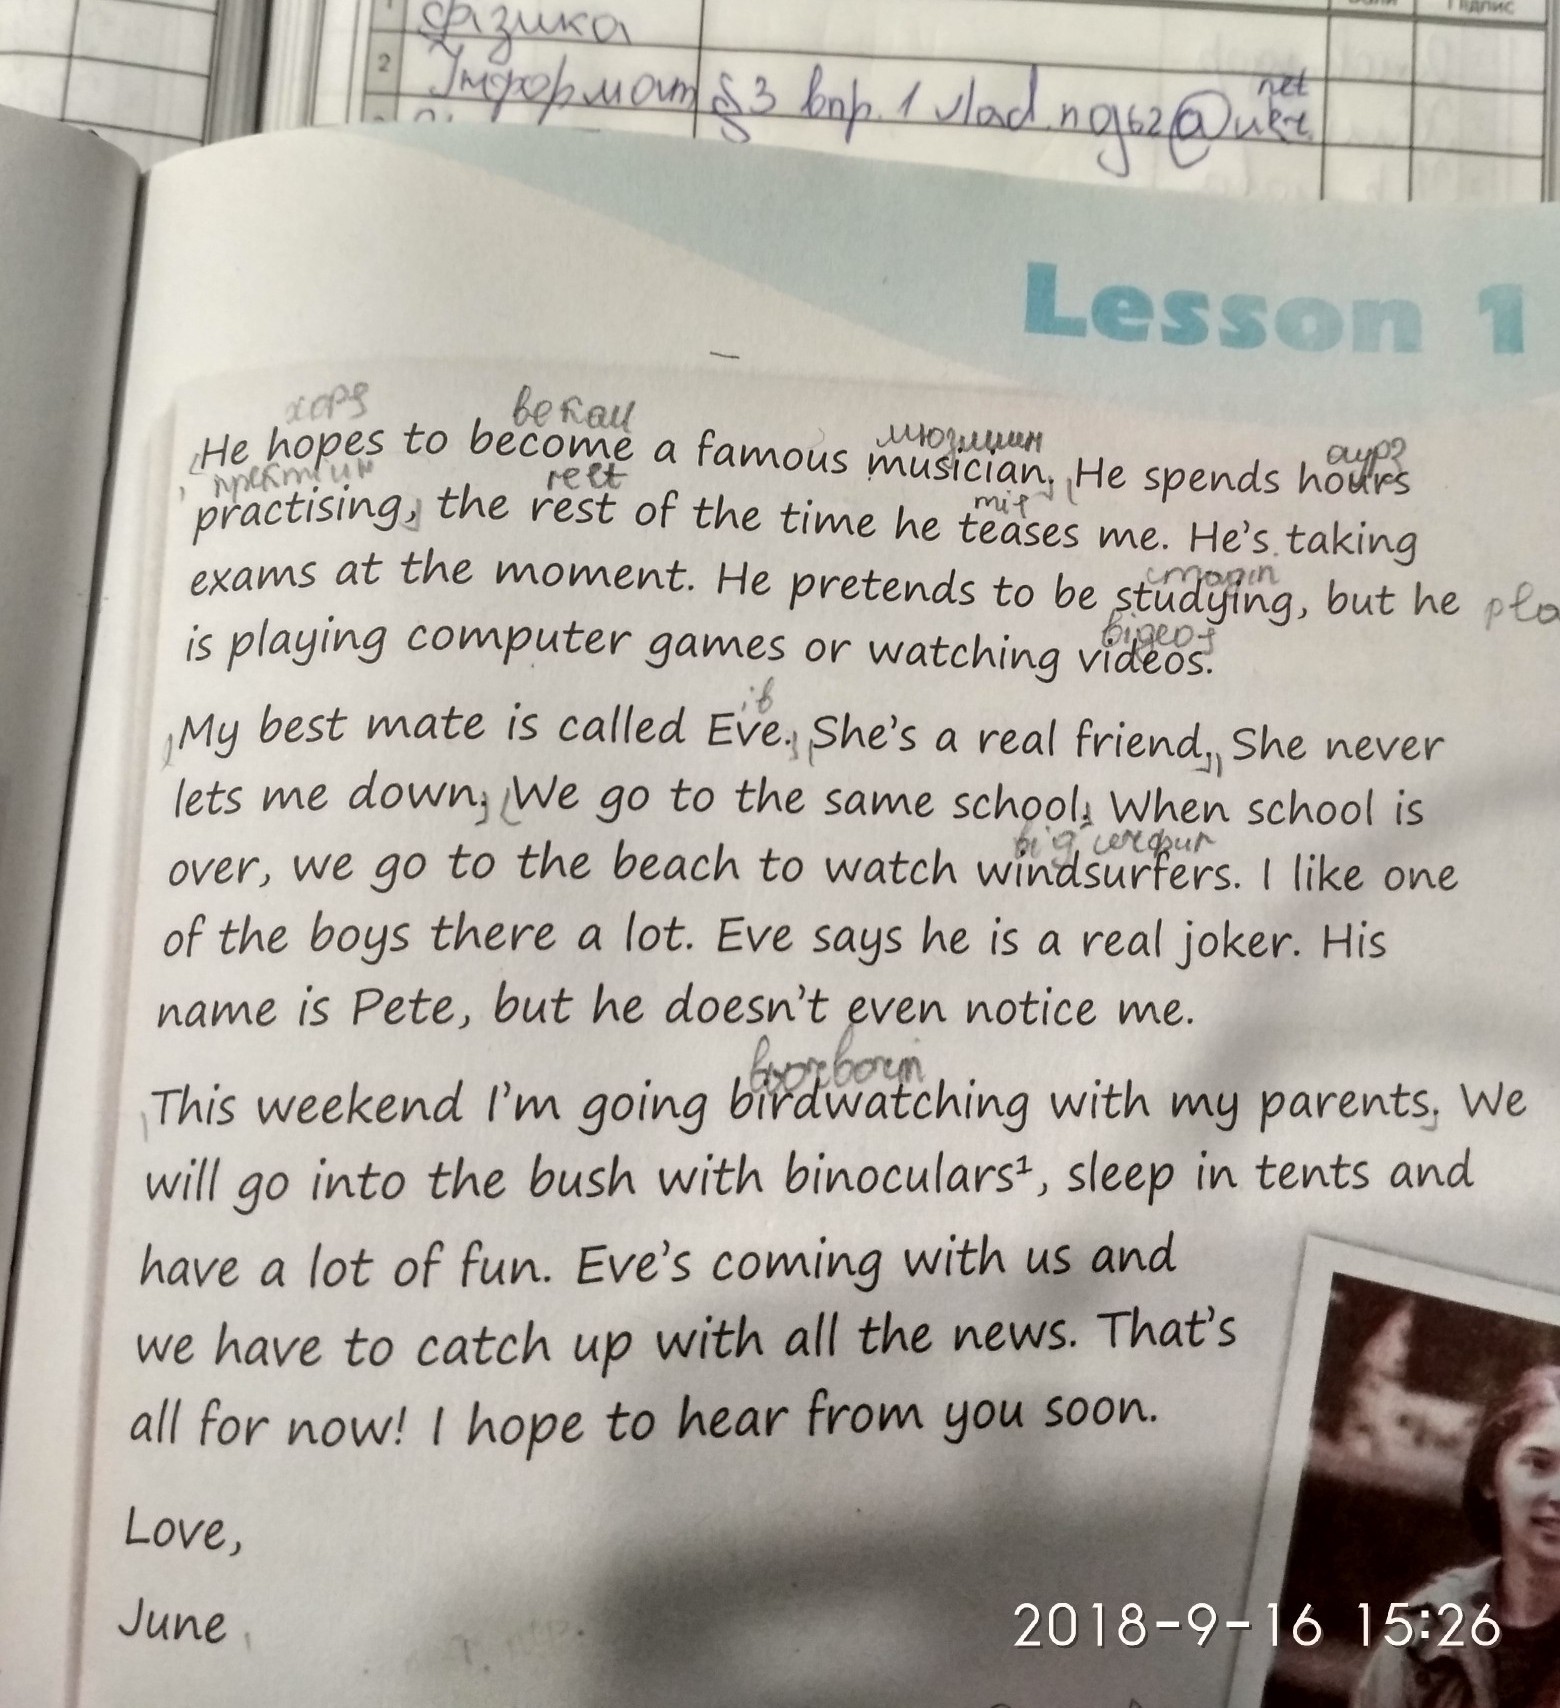 фізика
2 Інформат §3 впр. 1 vlad.
net
Lesson 1
хорз
He hopes to become a famous musician. He spends hours
practising, the rest of the time he teases me. He's taking
exams at the moment. He pretends to be studying, but he
is playing computer games or watching videos.
ів
My best mate is called Eve. She's a real friend. She never
lets me down. We go to the same school. When school is
over, we go to the beach to watch windsurfers. I like one
of the boys there a lot. Eve says he is a real joker. His
name is Pete, but he doesn't even notice me.
This weekend I'm going birdwatching with my parents. We
will go into the bush with binoculars¹, sleep in tents and
have a lot of fun. Eve's coming with us and
we have to catch up with all the news. That's
all for now! I hope to hear from you soon.
Love,
June
2018-9-16 15:26